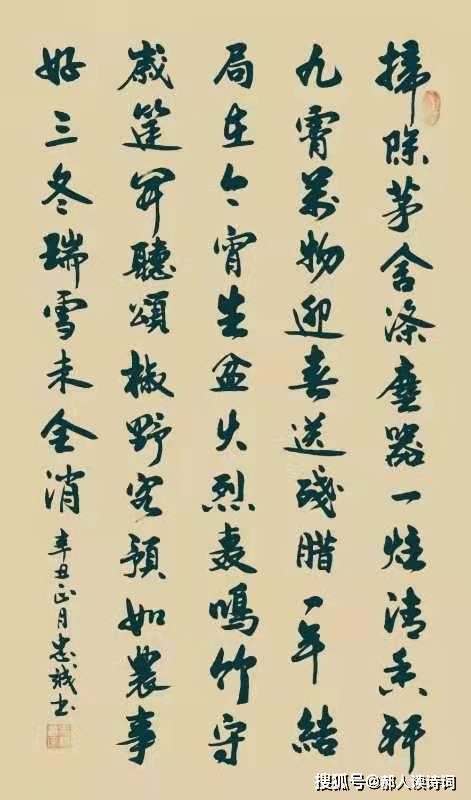 掃除茅舍滌塵器一炷清香拜
九霄萬物迎春送殘腊一年結
局在今宵生盆火烈轟鳴竹守
歲筵開聽頌椒野客預知農事
好三冬瑞雪未全消
辛丑正月忠誠书
搜狐号@郝人读诗词